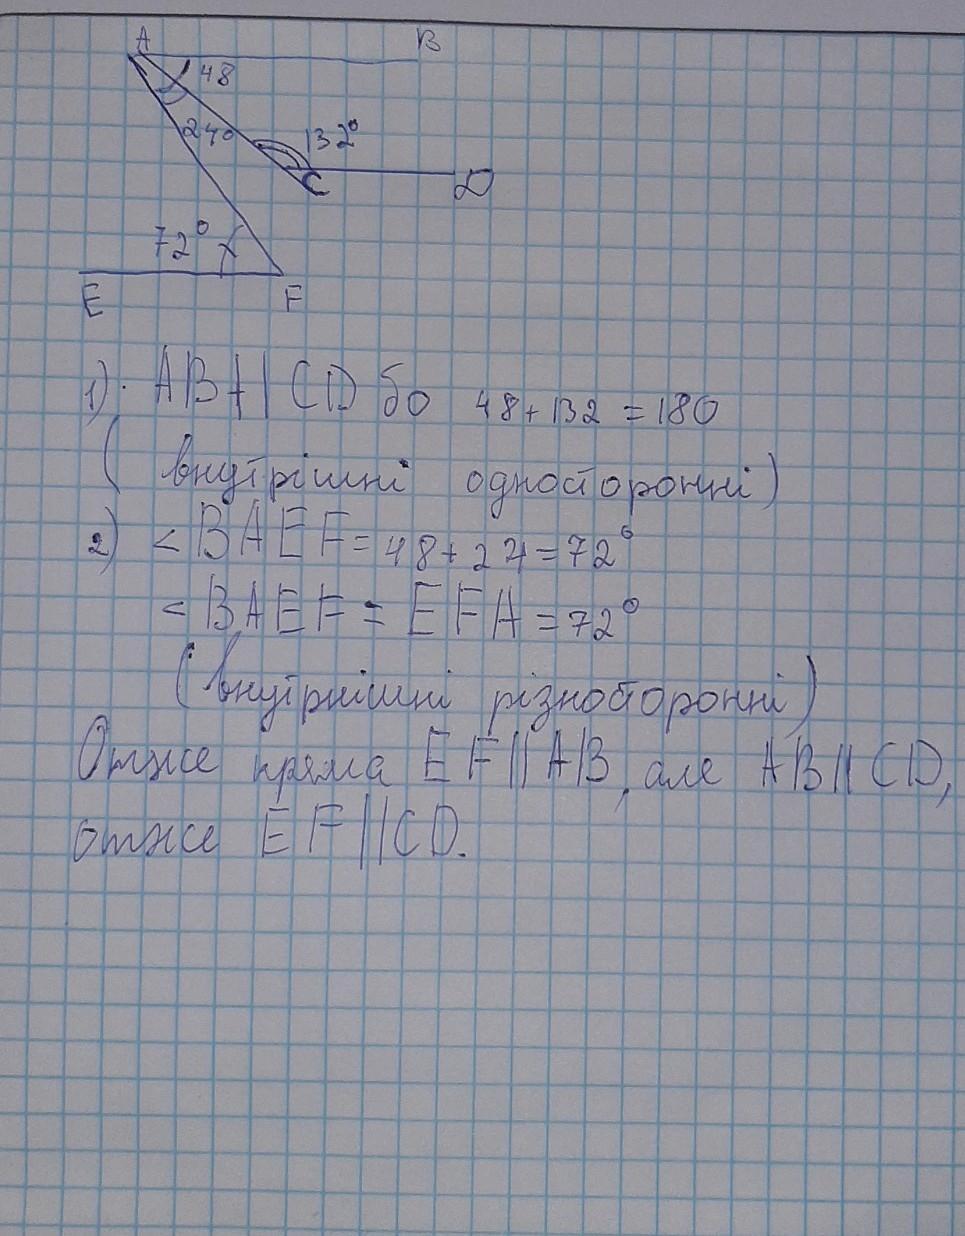 A B
48
24°
132°
C D
72°
E F
1). AB || CD бо 48 + 132 = 180
( внутрішні односторонні)
2) < BAEF = 48 + 24 = 72°
< BAEF = EFA = 72°
(внутрнішні різносторонні)
Отже пряма EF || AB, але AB || CD,
отже EF || CD.